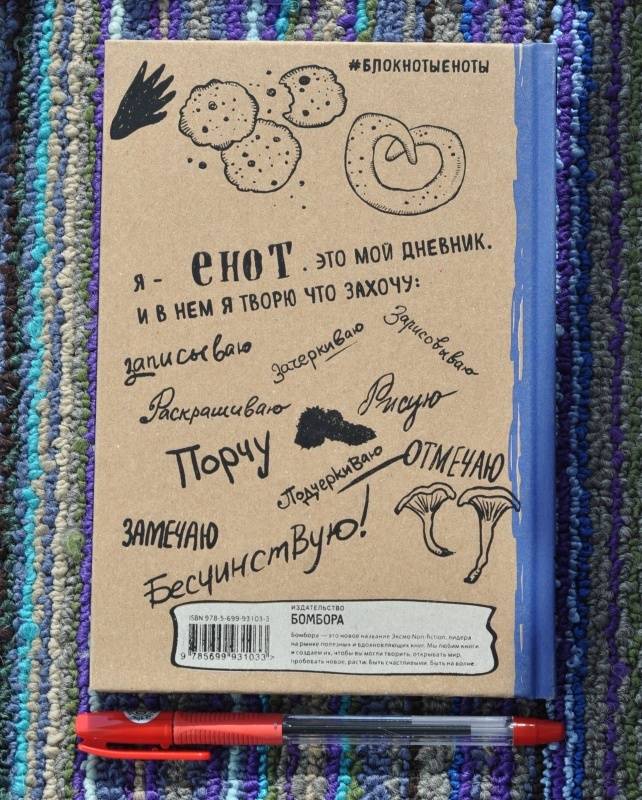 #БЛОКНОТЫЕНОТЫ
Я - ЕНОТ. ЭТО МОЙ ДНЕВНИК.
И В НЕМ Я ТВОРЮ ЧТО ЗАХОЧУ:
записываю
Зачеркиваю
Зарисовываю
Раскрашиваю
Рисую
Порчу
Подчеркиваю
ОТМЕЧАЮ
ЗАМЕЧАЮ
Бесчинствую!
ISBN 978-5-699-93103-3
9 785699 931033>
ИЗДАТЕЛЬСТВО
БОМБОРА
Бомбора — это новое название Эксмо Non-fiction, лидера
на рынке полезных и вдохновляющих книг. Мы любим книги
и создаем их, чтобы вы могли творить, открывать мир,
пробовать новое, расти. Быть счастливыми. Быть на волне.